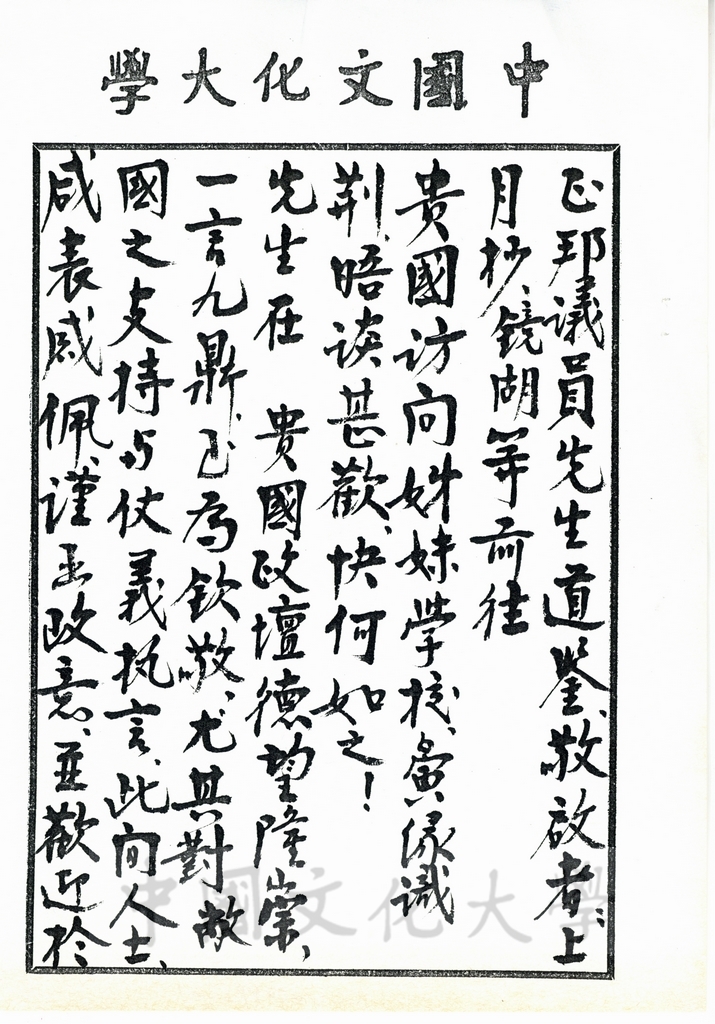 中國文化大學
正邦議員先生道鑒、敬啟者：上
月杪、鏡湖等前往
貴國訪問姊妹學校、夤緣識
荊、晤談甚歡、快何如之！
先生在　貴國政壇德望隆崇、
一言九鼎、至為欽敬、尤其對敝
國之支持与仗義执言、此间人士、
咸表感佩、謹函致意、並歡迎於
中國文化大學